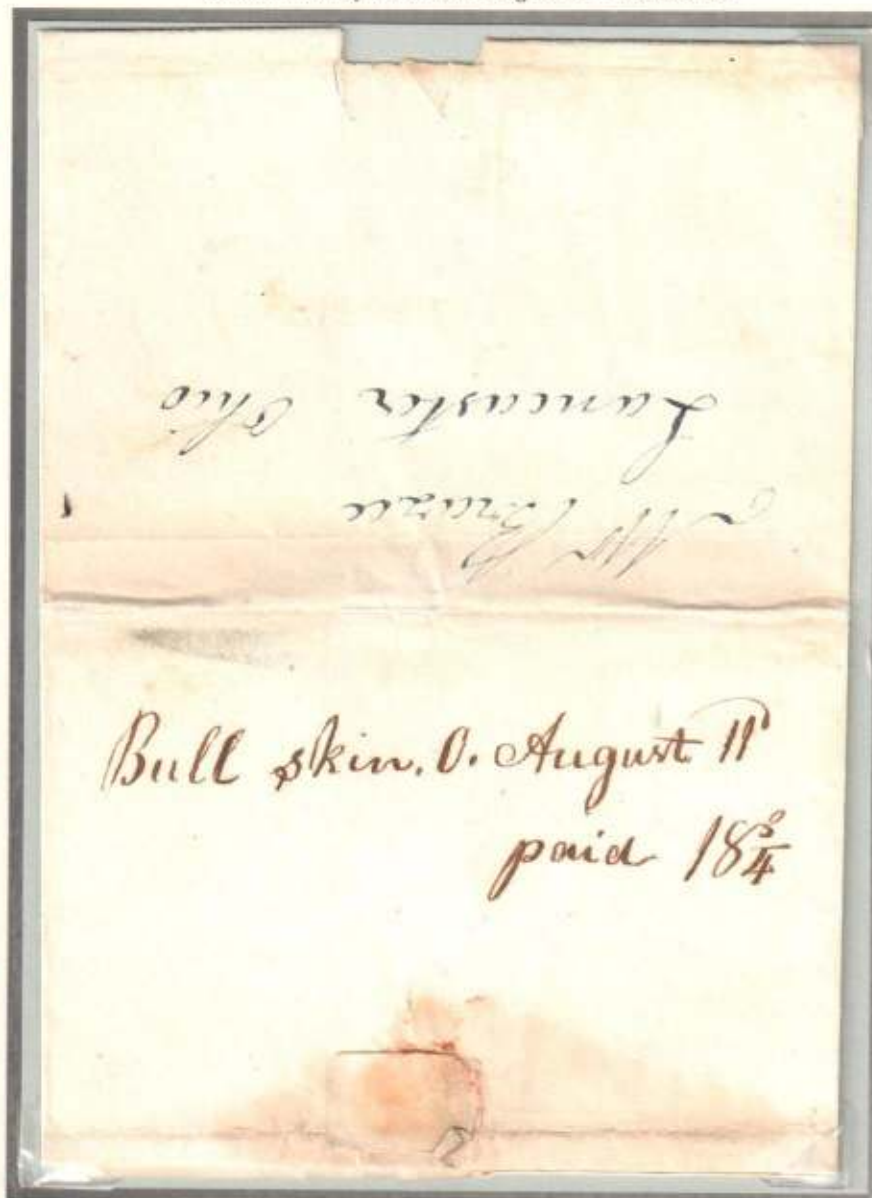 Lancaster Ohio
Bull skin. O. August 11
paid 18¾